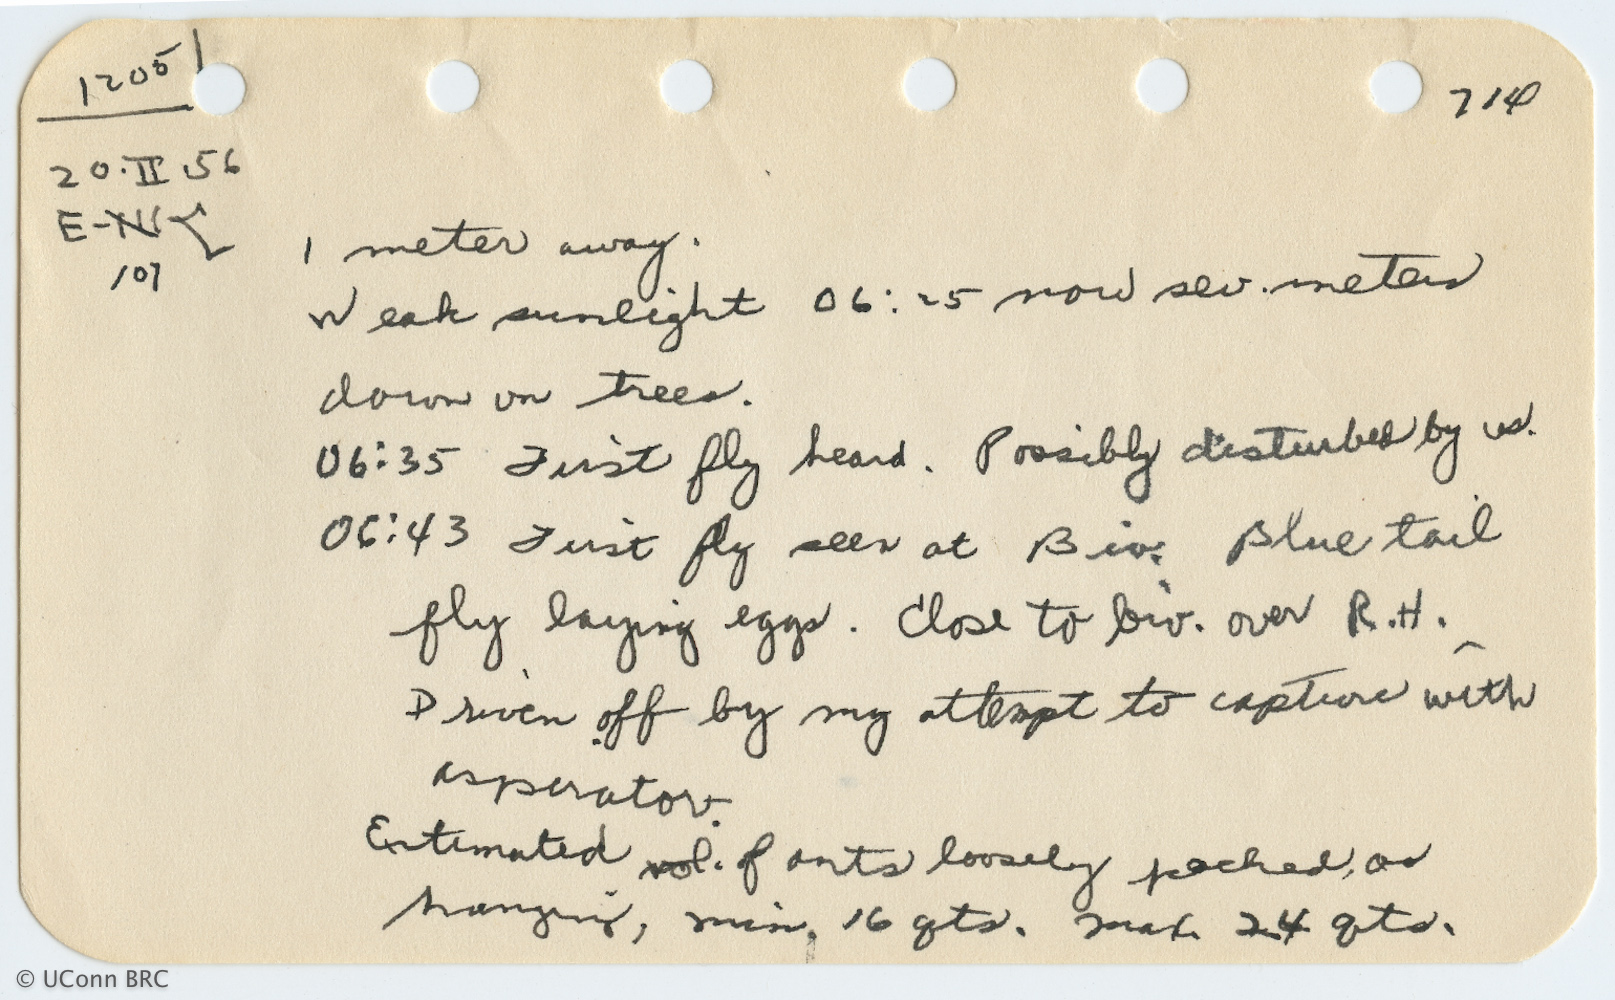 12051
714
20.II.56
E-
107
1 meter away.
Weak sunlight 06:25 now sev. meters
down on trees.
06:35 First fly heard. Possibly disturbed by us.
06:43 First fly seen at Biv. Blue tail
fly laying eggs. Close to biv. over R.H.
Driven off by my attempt to capture with
asperator.
Estimated vol. of ants loosely packed, as
hanging, min. 16 qts. max. 24 qts.
© UConn BRC